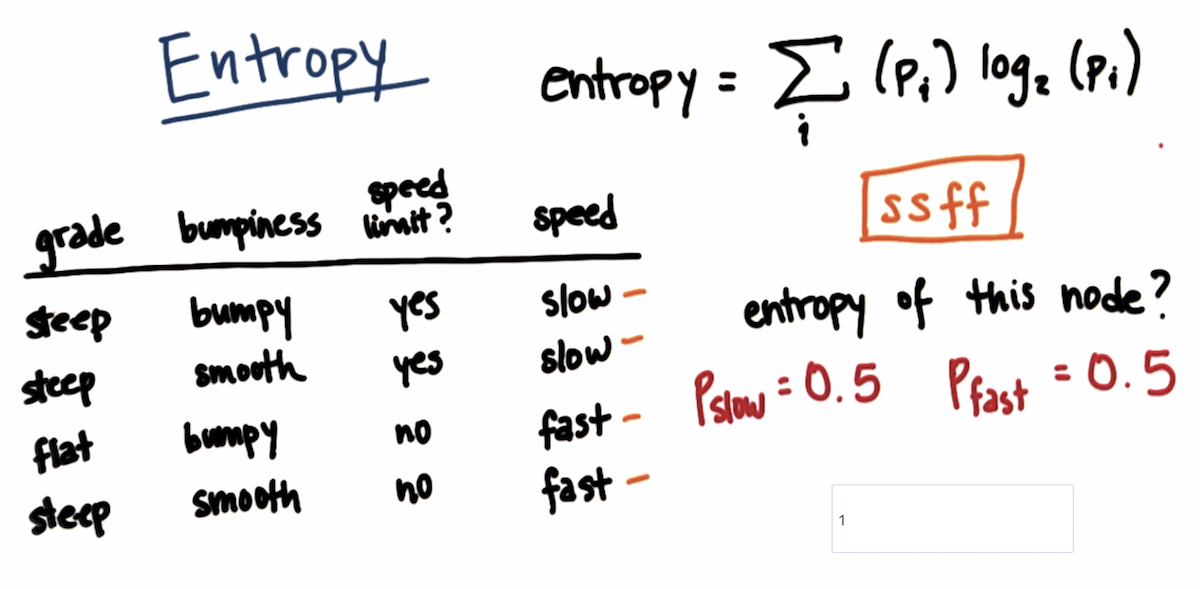 Entropy
entropy = Σ (pᵢ) log₂ (pᵢ)
i
ssff
grade bumpiness speed limit? speed
steep bumpy yes slow –
steep smooth yes slow –
flat bumpy no fast –
steep smooth no fast –
entropy of this node?
Pslow = 0.5 Pfast = 0.5
1